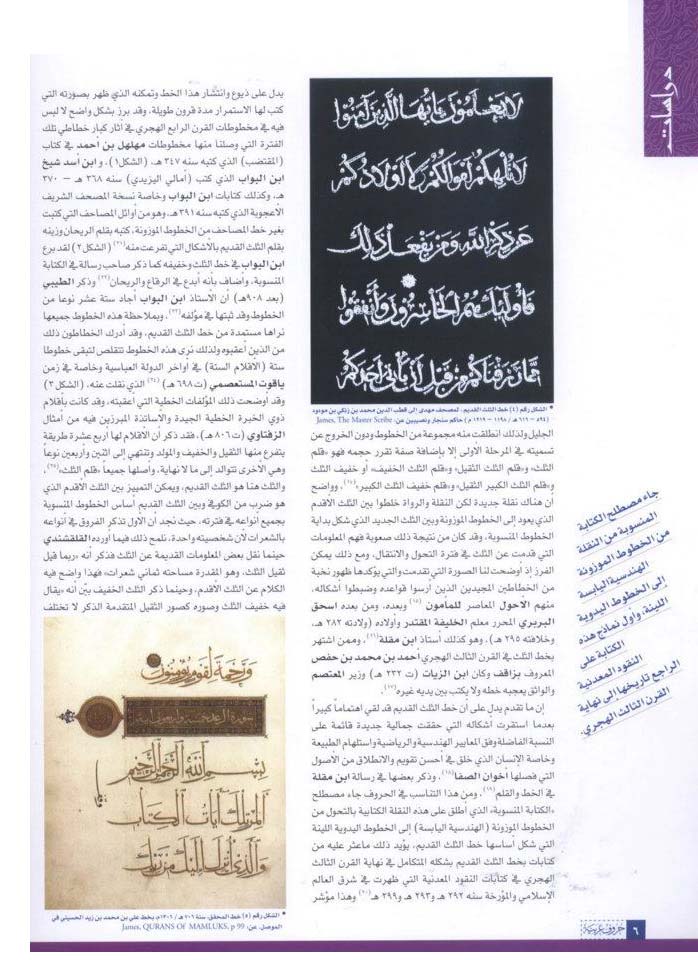 دراسات
لا يعلمون يا أيها الذين آمنوا
لا تلهكم أموالكم ولا أولادكم
عن ذكر الله ومن يفعل ذلك
فأولئك هم الخاسرون وأنفقوا
مما رزقناكم من قبل أن يأتي أحدكم
الشكل رقم (٤) خط الثلث القديم، لمصحف مهدى إلى قطب الدين محمد بن زنكي بن مودود
(٥٩٤ – ٦١٦ هـ / ١١٩٨ – ١٢١٩ م) حاكم سنجار ونصيبين عن: James, The Master Scribe
الجليل ولذلك انطلقت منه مجموعة من الخطوط ودون الخروج عن
تسميته في المرحلة الأولى إلا بإضافة صفة تقرر حجمه فهو «قلم
الثلث»، و«قلم الثلث الثقيل»، و«قلم الثلث الخفيف» أو خفيف الثلث
و«قلم الثلث الكبير الثقيل»، و«قلم خفيف الثلث الكبير»(١٤). وواضح
أن هناك نقلة جديدة لكن النقلة والرواة خلطوا بين الثلث الأقدم
الذي يعود إلى الخطوط الموزونة وبين الثلث الجديد الذي شكل بداية
الخطوط المنسوبة، وقد كان من نتيجة ذلك صعوبة فهم المعلومات
التي قدمت عن الثلث في فترة التحول والانتقال، ومع ذلك يمكن
الفرز إذ أوضحت لنا الصورة التي تقدمت والتي يؤكدها ظهور نخبة
من الخطاطين المجيدين الذين أرسوا قواعده وضبطوا أشكاله،
منهم الأحول المعاصر للمأمون (١٥) وبعده، ومن بعده اسحق
البربري المحرر معلم الخليفة المقتدر وأولاده (ولادته ٢٨٢ هـ،
وخلافته ٢٩٥ هـ)، وهو كذلك أستاذ ابن مقلة(١٦)، وممن اشتهر
بخط الثلث في القرن الثالث الهجري أحمد بن محمد بن حفص
المعروف بزاقف وكان ابن الزيات (ت ٢٣٣ هـ) وزير المعتصم
والواثق يعجبه خطه ولا يكتب بين يديه غيره(١٧).
إن ما تقدم يدل على أن خط الثلث القديم قد لقي اهتماماً كبيراً
بعدما استقرت أشكاله التي حققت جمالية جديدة قائمة على
النسبة الفاضلة وفق المعايير الهندسية والرياضية واستلهام الطبيعة
وخاصة الإنسان الذي خلق في أحسن تقويم والانطلاق من الأصول
التي فصلها أخوان الصفا(١٨)، وذكر بعضها في رسالة ابن مقلة
في الخط والقلم(١٩). ومن هذا التناسب في الحروف جاء مصطلح
«الكتابة المنسوبة» الذي أطلق على هذه النقلة الكتابية بالتحول من
الخطوط الموزونة (الهندسية اليابسة) إلى الخطوط اليدوية اللينة
التي شكل أساسها خط الثلث القديم، يؤيد ذلك ماعثر عليه من
كتابات بخط الثلث القديم بشكله المتكامل في نهاية القرن الثالث
الهجري في كتابات النقود المعدنية التي ظهرت في شرق العالم
الإسلامي والمؤرخة سنه ٢٩٢ هـ و٢٩٣ هـ و٢٩٩ هـ(٢٠) وهذا مؤشر
جاء مصطلح الكتابة
المنسوبة من النقلة
من الخطوط الموزونة
الهندسية اليابسة
إلى الخطوط اليدوية
اللينة، وأول نماذج هذه
الكتابة على
النقود المعدنية
الراجع تاريخها إلى نهاية
القرن الثالث الهجري.
يدل على ذيوع وانتشار هذا الخط وتمكنه الذي ظهر بصورته التي
كتب لها الاستمرار مدة قرون طويلة، وقد برز بشكل واضح لا لبس
فيه في مخطوطات القرن الرابع الهجري في آثار كبار خطاطي تلك
الفترة التي وصلنا منها مخطوطات مهلهل بن أحمد في كتاب
(المقتضب) الذي كتبه سنه ٣٤٧ هـ، (الشكل١)، و ابن أسد شيخ
ابن البواب الذي كتب (أمالي اليزيدي) سنه ٣٦٨ هـ – ٣٧٠
هـ، وكذلك كتابات ابن البواب وخاصة نسخة المصحف الشريف
الأعجوبة الذي كتبه سنه ٣٩١ هـ، وهو من أوائل المصاحف التي كتبت
بغير خط المصاحف من الخطوط الموزونة، كتبه بقلم الريحان وزينه
بقلم الثلث القديم بالأشكال التي تفرعت منه(٢١) (الشكل ٢) لقد برع
ابن البواب في خط الثلث وخفيفه كما ذكر صاحب رسالة في الكتابة
المنسوبة، وأضاف بأنه أبدع في الرقاع والريحان(٢٢) وذكر الطيبي
(بعد ٩٠٨هـ) أن الأستاذ ابن البواب أجاد ستة عشر نوعا من
الخطوط وقد ثبتها في مؤلفه(٢٣)، وبملاحظة هذه الخطوط جميعها
نراها مستمدة من خط الثلث القديم، وقد أدرك الخطاطون ذلك
من الذين أعقبوه ولذلك نرى هذه الخطوط تتقلص لتبقى خطوطا
ستة (الأقلام الستة) في أواخر الدولة العباسية وخاصة في زمن
ياقوت المستعصمي (ت٦٩٨ هـ) (٢٤) الذي نقلت عنه، (الشكل ٣)
وقد أوضحت ذلك المؤلفات الخطية التي أعقبته، وقد كانت بأقلام
ذوي الخبرة الخطية الجيدة والأساتذة المبرزين فيه من أمثال
الزفتاوي (ت ٨٠٦ هـ)، فقد ذكر أن الأقلام لها أربع عشرة طريقة
يتفرع منها الثقيل والخفيف والمولد وتنتهي إلى اثنين وأربعين نوعاً
وهي الأخرى تتوالد إلى ما لا نهاية، وأصلها جميعاً «قلم الثلث»(٢٥).
والثلث هنا هو الثلث القديم، ويمكن التمييز بين الثلث الأقدم الذي
هو ضرب من الكوفي وبين الثلث القديم أساس الخطوط المنسوبة
بجميع أنواعه في فترته، حيث نجد أن الأول تذكر الفروق في أنواعه
بالشعرات لأن شخصيته واحدة، نلمح ذلك فيما أورده القلقشندي
حينما نقل بعض المعلومات القديمة عن الثلث فذكر أنه «ربما قيل
ثقيل الثلث، وهو المقدرة مساحته ثماني شعرات» فهذا واضح فيه
الكلام عن الثلث الأقدم، وحينما ذكر الثلث الخفيف بين أنه «يقال
فيه خفيف الثلث وصوره كصور الثقيل المتقدمة الذكر لا تختلف
ورحمة لقوم يؤمنون
بسم الله الرحمن الرحيم
المر تلك آيات الكتاب
والذي أنزل إليك من ربك
الشكل رقم (٥) خط المحقق، سنة ٧٠٦ هـ / ١٣٠٦م، بخط علي بن محمد بن زيد الحسيني في
الموصل، عن: James, QURANS Of MAMLUKS, p 99
٦ حروف عربية